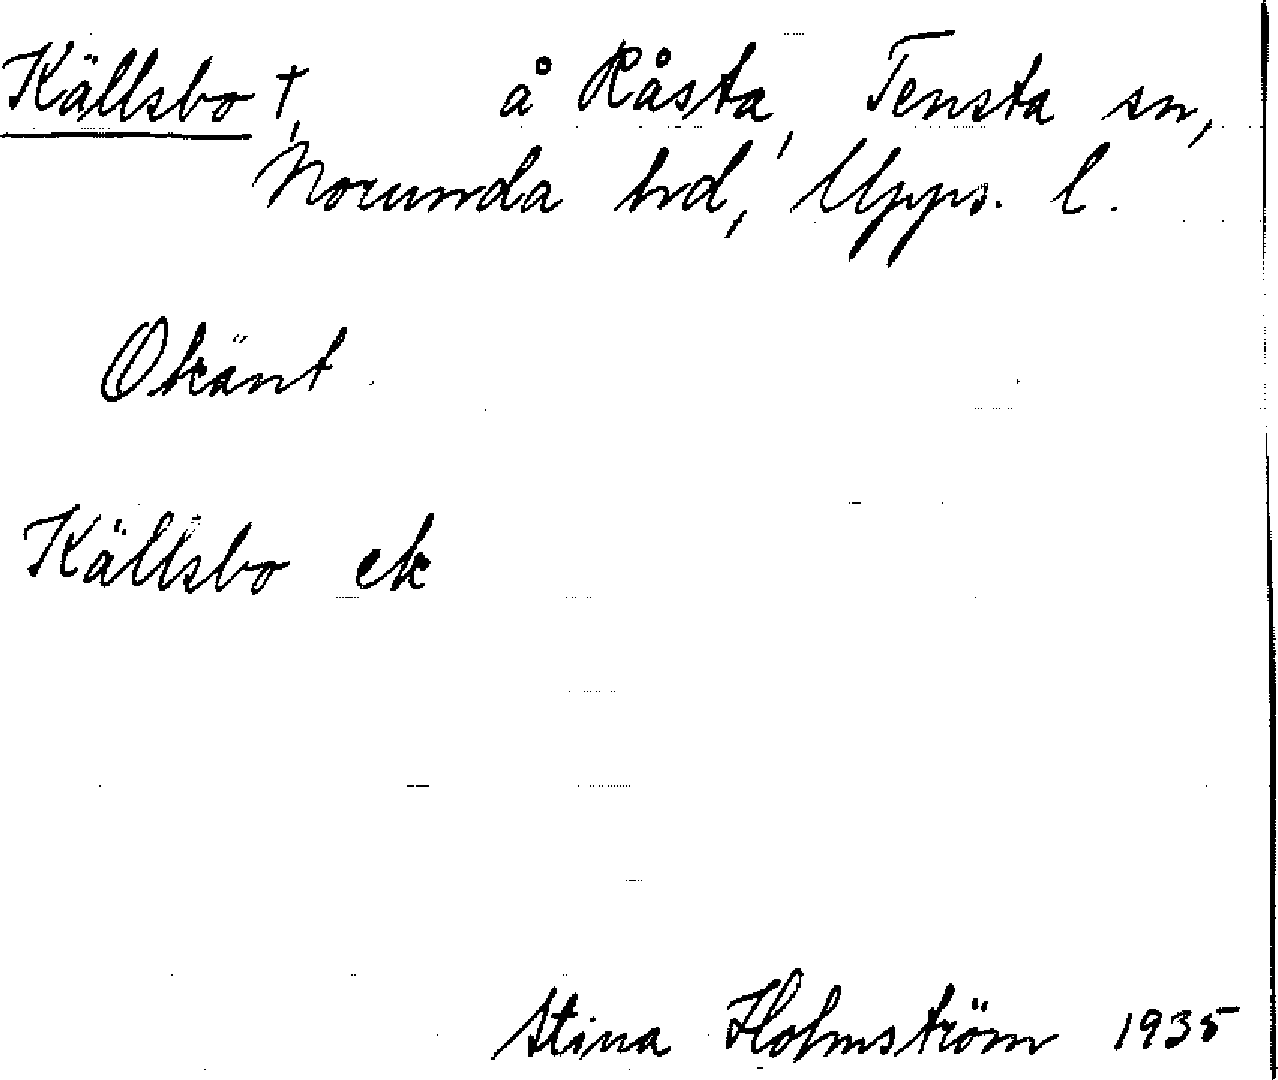 Källsbo †, å Råsta, Tensta sn,
Norunda hd, Upps. l.
Okänt.
Källsbo ek
Stina Holmström 1935